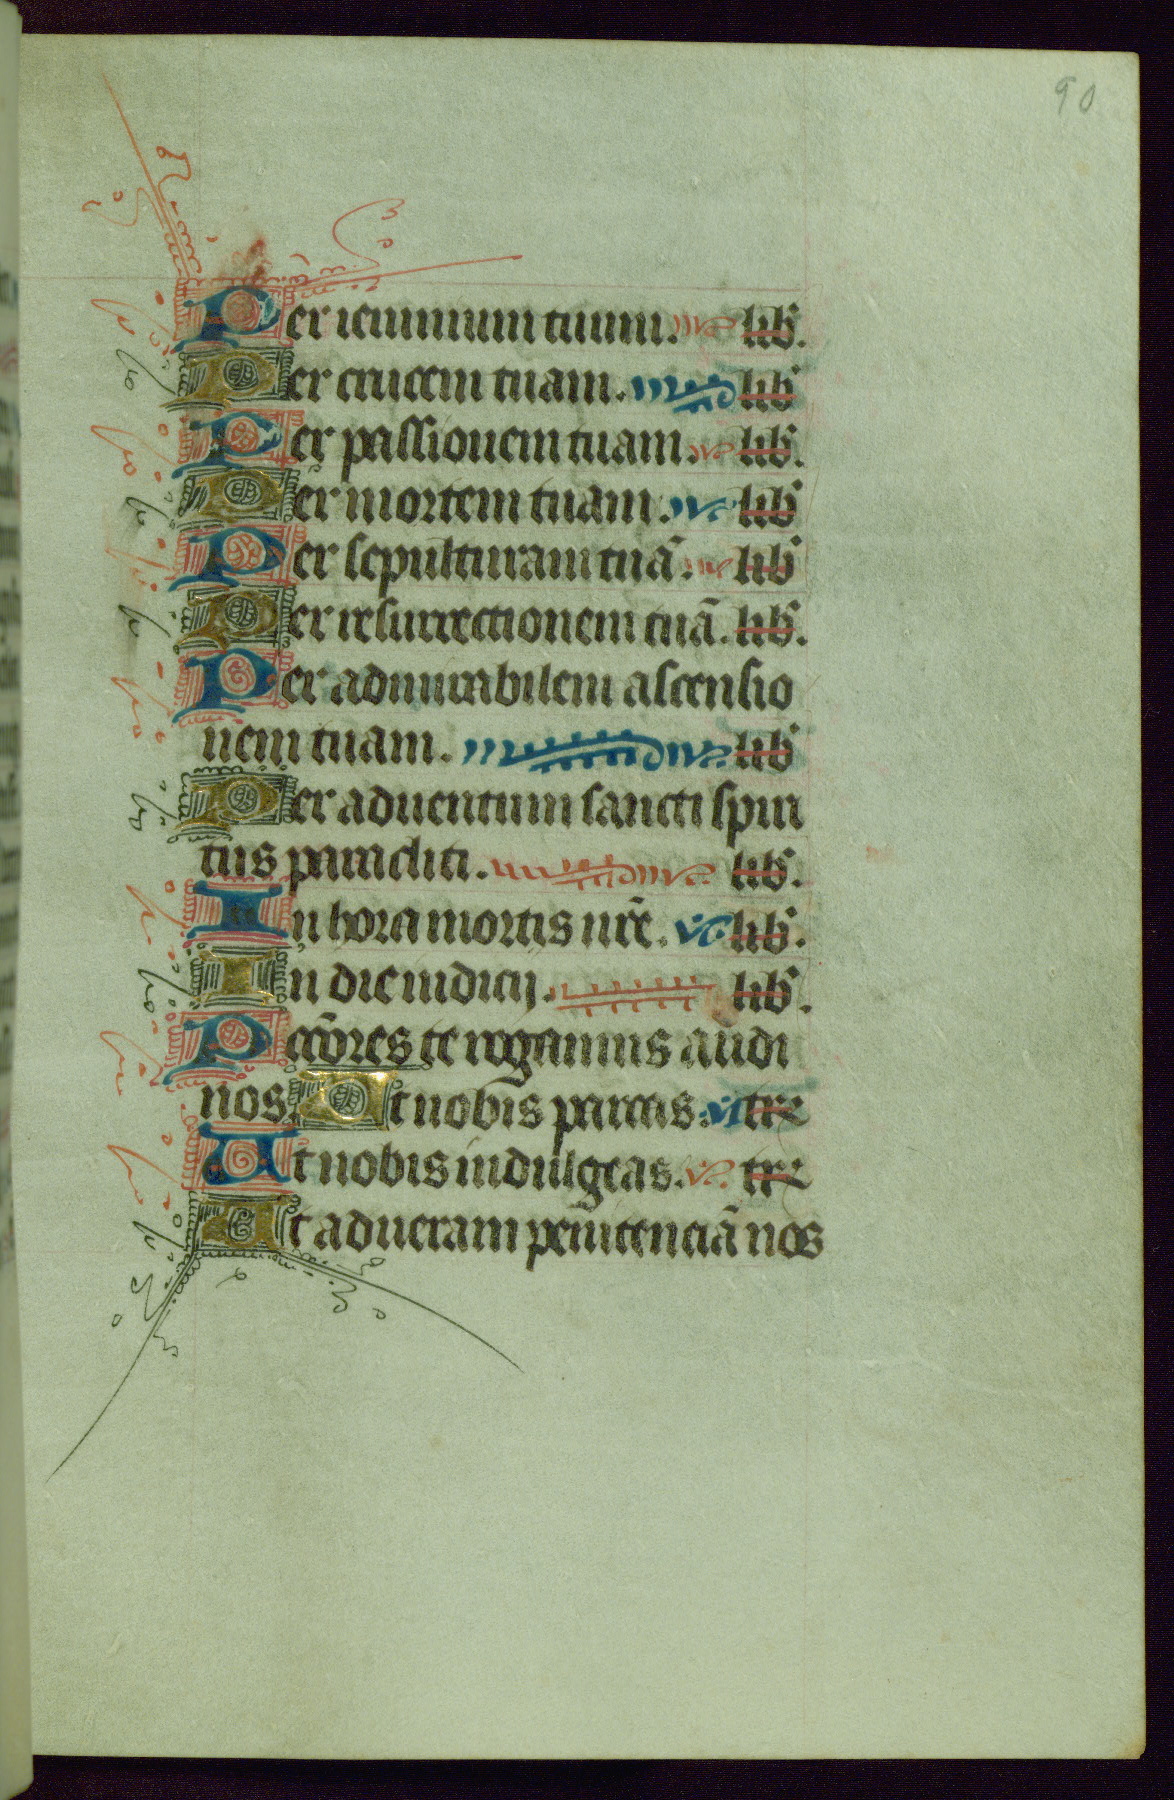 90
Per ieiunium tuum. lib.
Per crucem tuam. lib
Per passionem tuam. lib.
Per mortem tuam. lib
Per sepulturam tuā. lib
Per resurrectionem tuā. lib.
Per admirabilem ascensio
nem tuam. lib
Per aduentum sancti spiri
tus paracliti. lib.
In hora mortis nr̄e. lib.
In die iudicij. lib.
Pccōres te rogamus audi
nos. Ut nobis parcas. tre
Ut nobis indulgeas. tre
Et ad ueram penitenciā nos